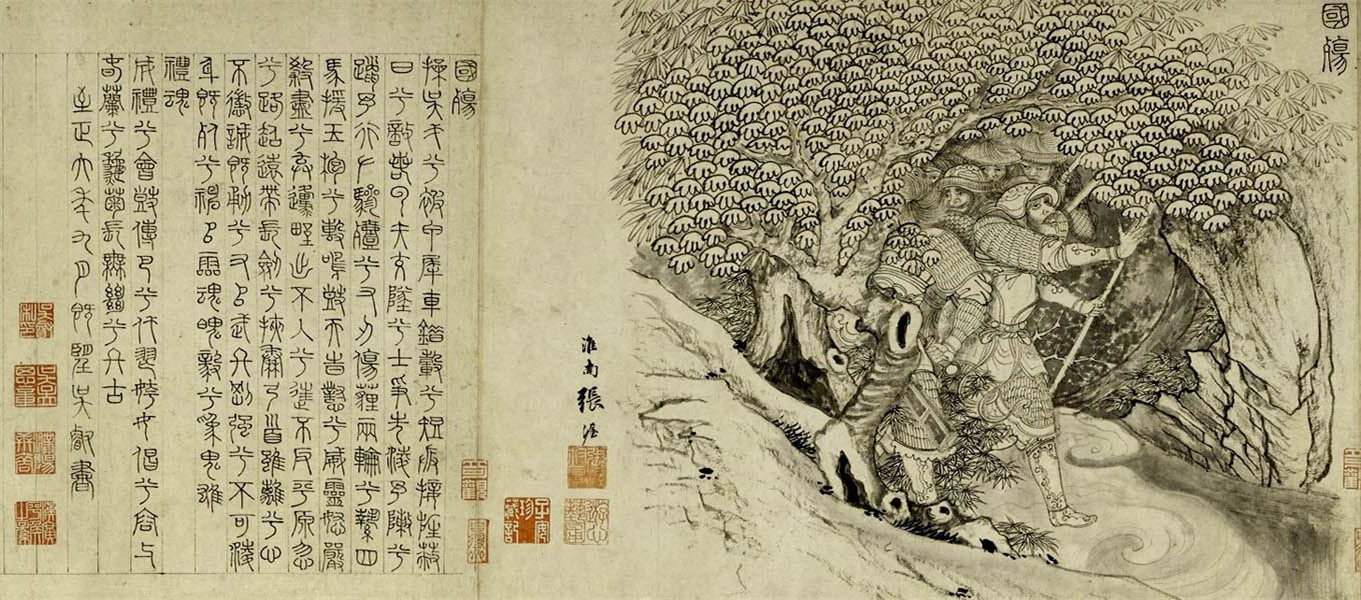 國殤
淮南張渥
國殤
操吳戈兮被犀甲車錯轂兮短兵接旌蔽
日兮敵若雲矢交墜兮士爭先凌余陣兮
躐余行左驂殪兮右刃傷霾兩輪兮縶四
馬援玉枹兮擊鳴鼓天時懟兮威靈怒嚴
殺盡兮棄壄出不入兮往不反平原忽
兮路超遠帶長劍兮挾秦弓首雖離兮心
不懲誠既勇兮又以武終剛強兮不可凌
身既死兮神以靈魂魄毅兮為鬼雄
禮魂
成禮兮會鼓傳芭兮代舞姱女倡兮容與
春蘭兮秋菊長無絕兮終古
至正六年九月既望吳叡書